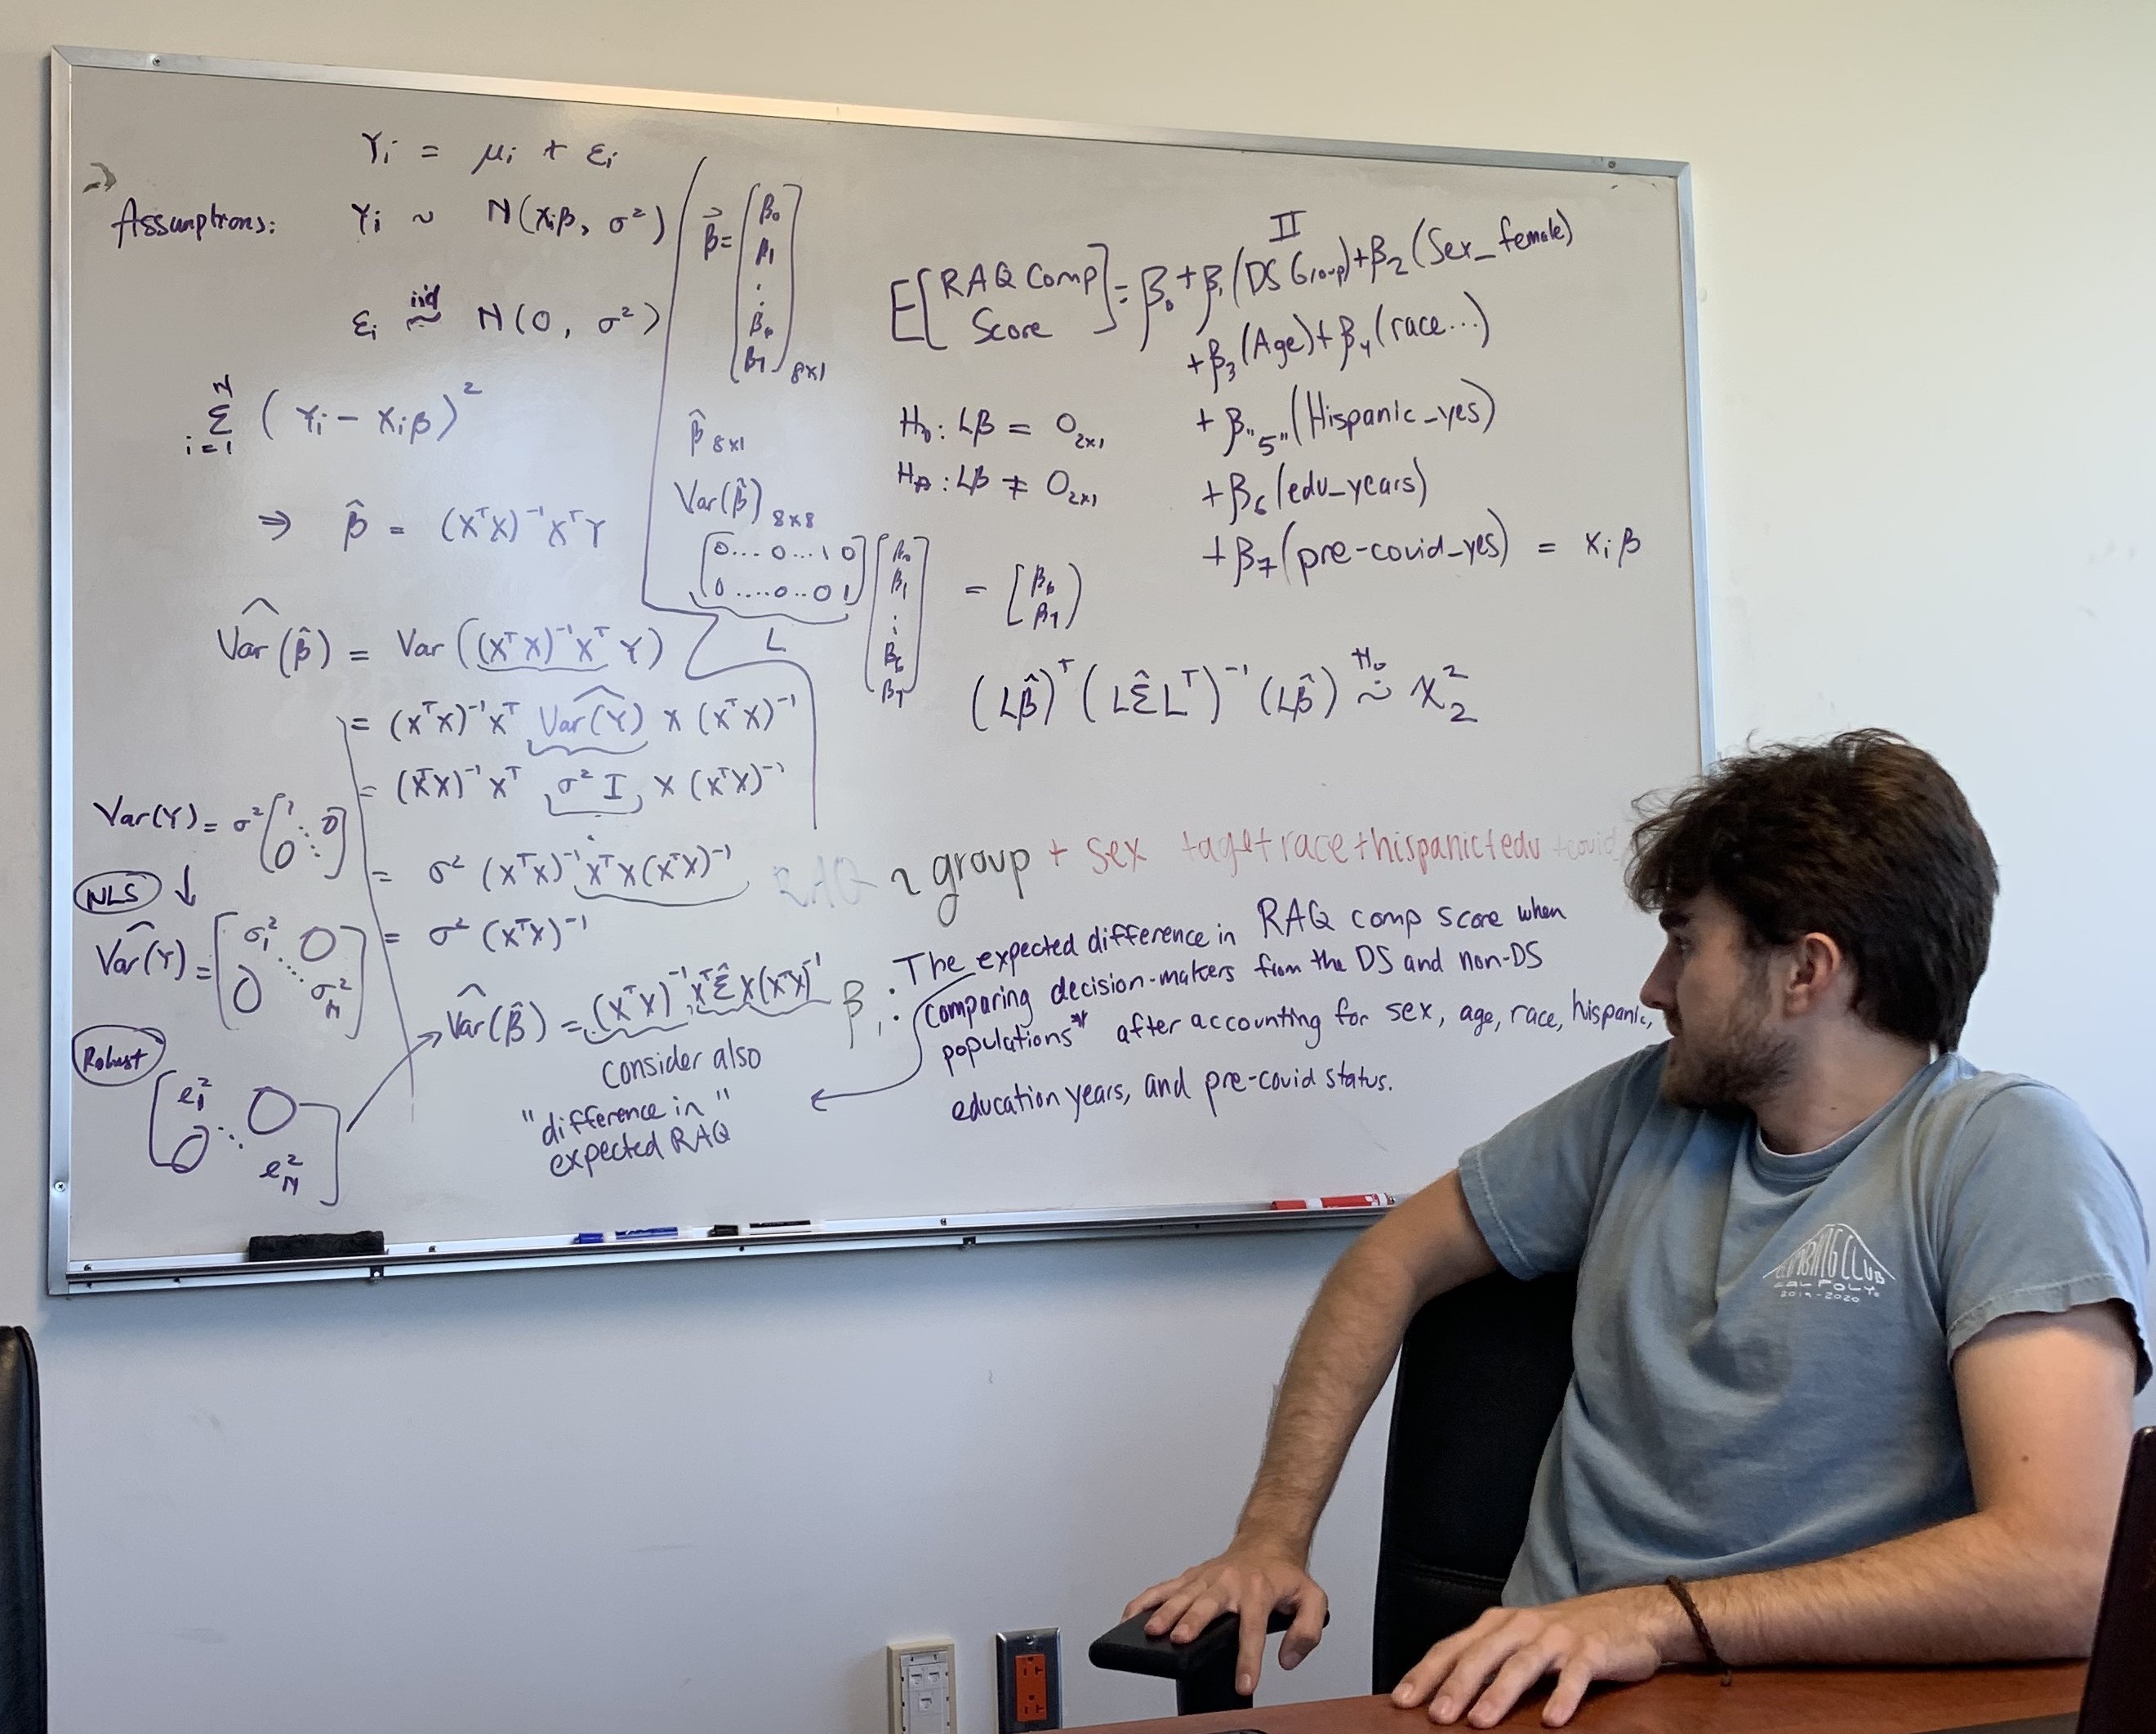 Yi = μi + εi
Assumptions: Yi ~ N(xiβ, σ²)
εi iid ~ N(0, σ²)
N
Σ (Yi - Xiβ)²
i=1
⇒ β̂ = (XᵀX)⁻¹XᵀY
V̂ar(β̂) = Var((XᵀX)⁻¹XᵀY)
= (XᵀX)⁻¹Xᵀ V̂ar(Y) X (XᵀX)⁻¹
= (XᵀX)⁻¹Xᵀ σ² I X (XᵀX)⁻¹
= σ² (XᵀX)⁻¹XᵀX(XᵀX)⁻¹
= σ² (XᵀX)⁻¹
Var(Y) = σ² [1 ⋱ 0
0 ⋱]
NLS ↓
V̂ar(Y) = [σ₁² 0
0 ⋱ σ_N²]
Robust
[e₁² 0
0 ⋱ e_N²]
V̂ar(β̂) = (XᵀX)⁻¹XᵀΣ̂X(XᵀX)⁻¹
consider also
"difference in"
expected RAQ
β⃗ = [β₀
β₁
⋮
β₆
β₇] 8x1
β̂ 8x1
Var(β̂) 8x8
[0....0...1 0
0....0..0 1] [β₀ β₁ ⋮ β₆ β₇] = [β₆ β₇]
L
II
E[RAQ Comp Score] = β₀ + β₁(DS Group) + β₂(Sex_female)
+ β₃(Age) + β₄(race...)
+ β"5"(Hispanic_yes)
+ β₆(edu_years)
+ β₇(pre-covid_yes) = xiβ
H₀: Lβ = 0 2x1
H_A: Lβ ≠ 0 2x1
(Lβ̂)ᵀ(LΣ̂Lᵀ)⁻¹(Lβ̂) H₀ ~̇ χ²₂
RAQ ~ group + sex +age+race+hispanic+edu +covid
β₁: The expected difference in RAQ comp score when
comparing decision-makers from the DS and non-DS
populations* after accounting for sex, age, race, hispanic,
education years, and pre-covid status.
CLIMBING CLUB
CAL POLY
2019-2020